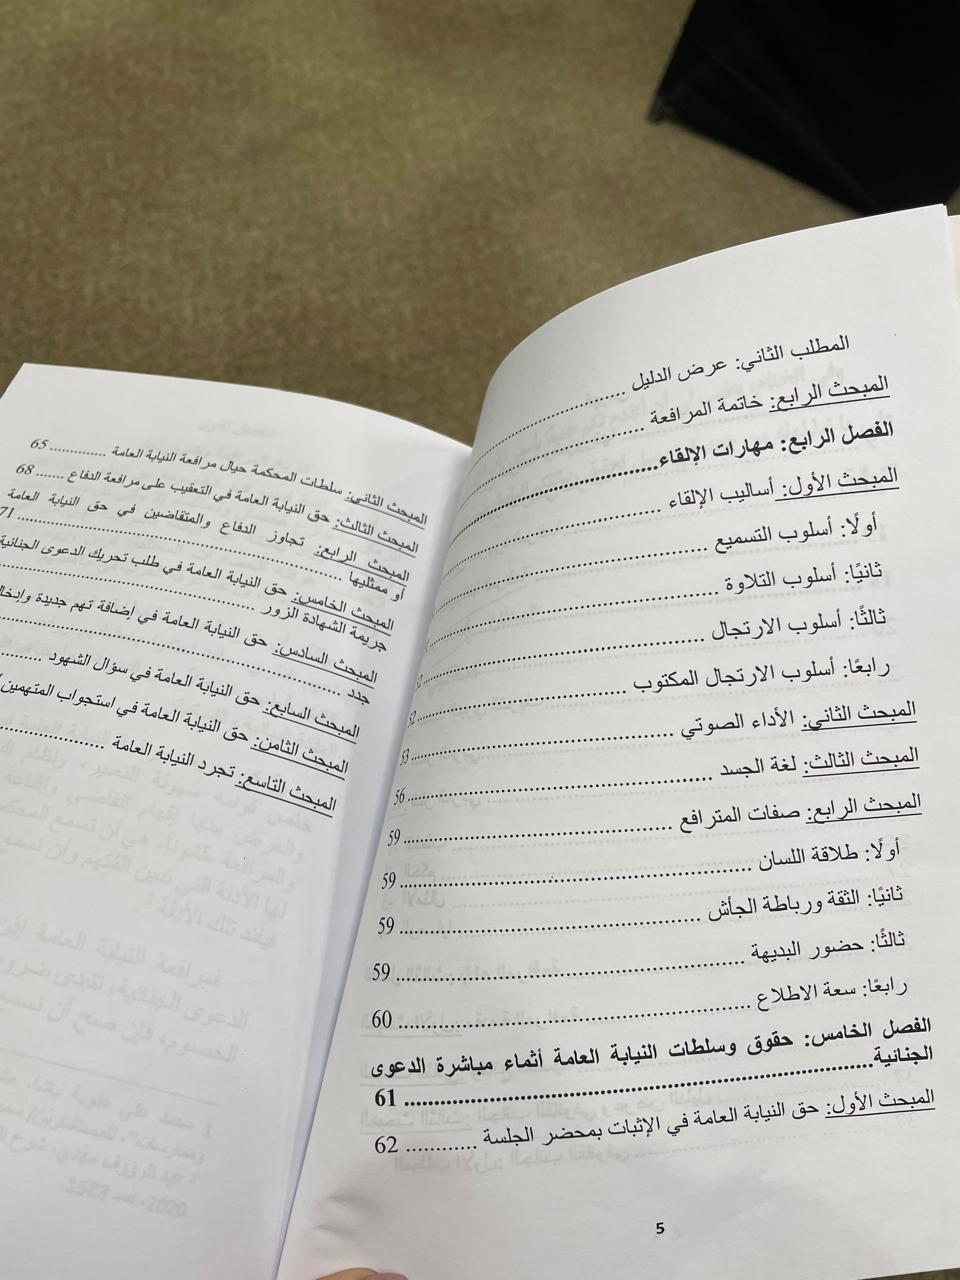 المطلب الثاني: عرض الدليل ........................
المبحث الرابع: خاتمة المرافعة ........................
الفصل الرابع: مهارات الإلقاء........................
المبحث الأول: أساليب الإلقاء ........................
أولًا: أسلوب التسميع ........................
ثانيًا: أسلوب التلاوة ........................
ثالثًا: أسلوب الارتجال ........................
رابعًا: أسلوب الارتجال المكتوب ........................
المبحث الثاني: الأداء الصوتي ........................ 53
المبحث الثالث: لغة الجسد ........................ 56
المبحث الرابع: صفات المترافع ........................ 59
أولًا: طلاقة اللسان ........................ 59
ثانيًا: الثقة ورباطة الجأش ........................ 59
ثالثًا: حضور البديهة ........................ 59
رابعًا: سعة الاطلاع ........................ 60
الفصل الخامس: حقوق وسلطات النيابة العامة أثماء مباشرة الدعوى
الجنائية........................ 61
المبحث الأول: حق النيابة العامة في الإثبات بمحضر الجلسة ........... 62
5
المبحث الثاني: سلطات المحكمة حيال مرافعة النيابة العامة ............. 65
المبحث الثالث: حق النيابة العامة في التعقيب على مرافعة الدفاع ....... 68
المبحث الرابع: تجاوز الدفاع والمتقاضين في حق النيابة العامة
أو ممثليها ........................ 71
المبحث الخامس: حق النيابة العامة في طلب تحريك الدعوى الجنائية
جريمة الشهادة الزور ........................
المبحث السادس: حق النيابة العامة في إضافة تهم جديدة وإدخال
جدد ........................
المبحث السابع: حق النيابة العامة في سؤال الشهود ........
المبحث الثامن: حق النيابة العامة في استجواب المتهمين
المبحث التاسع: تجرد النيابة العامة ........................